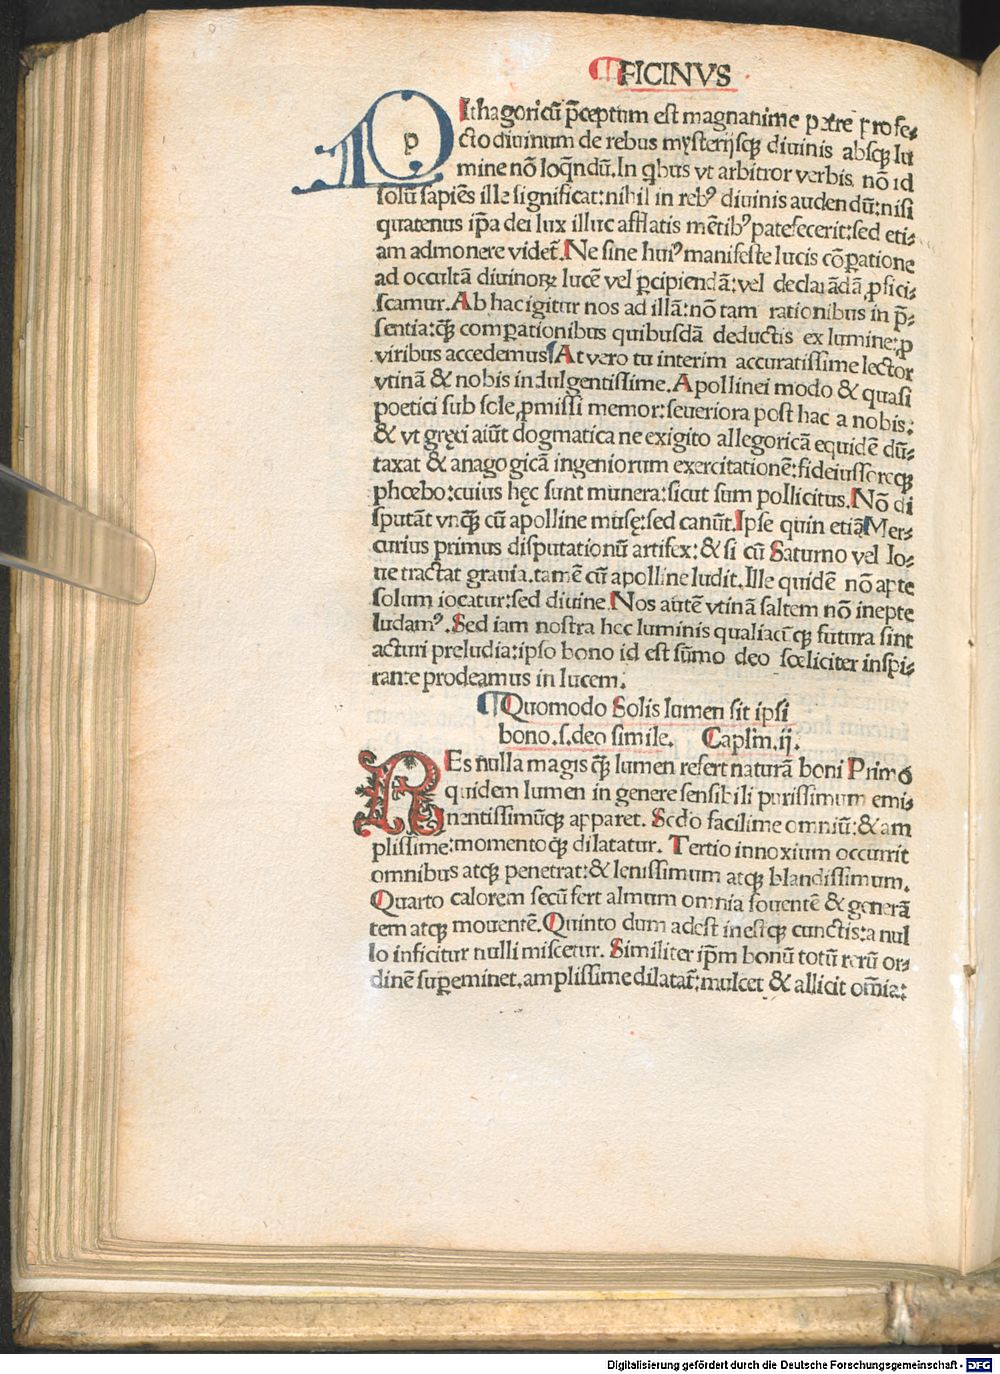 FICINVS
PIthagoricū p̄ceptum est magnanime patre profe⸗
cto diuinum de rebus mysterijsqꝫ diuinis absqꝫ lu
mine nō loq̄ndū. In qbus vt arbitror verbis nō id
solū sapiēs ille significat: nihil in rebꝰ diuinis audendū: nisi
quatenus ip̄a dei lux illuc afflatis mētibꝰ patefecerit: sed eti⸗
am admonere videt᷑. Ne sine huiꝰ manifeste lucis cōꝑatione
ad occultā diuinoꝝ lucē vel ꝑcipiendā: vel declarādā ꝓfici⸗
scamur. Ab hac igitur nos ad illā: nō tam rationibus in p̄⸗
sentia: qꝫ̄ comꝑationibus quibusdā deductis ex lumine: ꝓ
viribus accedemus. At vero tu interim accuratissime lector
vtinā & nobis indulgentissime. Apollinei modo & quasi
poetici sub sole ꝓmissi memor: seueriora post hac a nobis:
& vt gręci aiūt dogmatica ne exigito allegoricā equidē dū⸗
taxat & anagogicā ingeniorum exercitationē: fideiussoreqꝫ
phœbo: cuius hęc sunt munera: sicut sum pollicitus. Nō di
sputāt vnqꝫ̄ cū apolline musę: sed canūt. Ipse quin etiā Mer⸗
curius primus disputationū artifex: & si cū Saturno vel Io⸗
ue tractat grauia. tamē cū apolline ludit. Ille quidē nō apte
solum iocatur: sed diuine. Nos autē vtinā saltem nō inepte
ludamꝰ. Sed iam nostra hec luminis qualiacūqꝫ futura sint
acturi preludia: ipso bono id est sūmo deo fœliciter inspi⸗
rante prodeamus in lucem.
Quomodo Solis lumen sit ipsi
bono. s. deo simile. Caplm. ij.
REs nulla magis qꝫ̄ lumen refert naturā boni Primo
quidem lumen in genere sensibili purissimum emi⸗
nentissimūqꝫ apparet. Scd̄o facilime omniū: & am
plissime: momentoqꝫ dilatatur. Tertio innoxium occurrit
omnibus atqꝫ penetrat: & lenissimum atqꝫ blandissimum.
Quarto calorem secū fert almum omnia fouentē & generā
tem atqꝫ mouentē. Quinto dum adest inestqꝫ cunctis: a nul
lo inficitur nulli miscetur. Similiter ip̄m bonū totū rerū or⸗
dinē suꝑeminet, amplissime dilatat᷑: mulcet & allicit om̄ia:
Digitalisierung gefördert durch die Deutsche Forschungsgemeinschaft - DFG